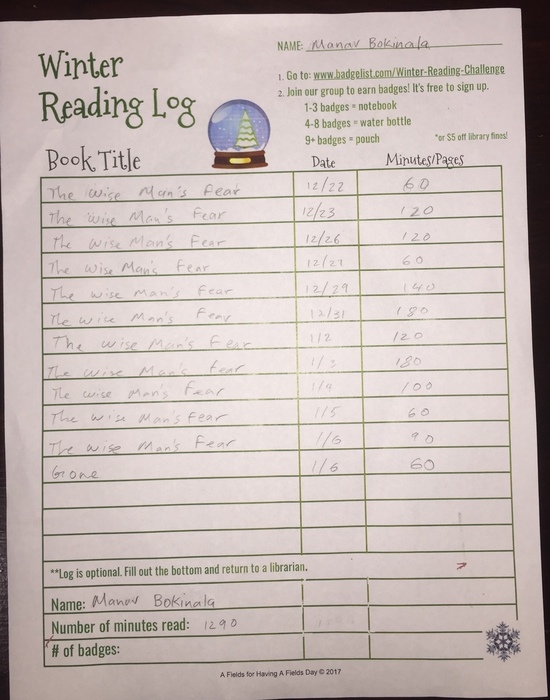 NAME: Manav Bokinala
Winter
Reading Log
1. Go to: www.badgelist.com/Winter-Reading-Challenge
2. Join our group to earn badges! It's free to sign up.
1-3 badges = notebook
4-8 badges = water bottle
9+ badges = pouch *or $5 off library fines!
Book Title Date Minutes/Pages
The wise Man's fear 12/22 60
The wise Man's Fear 12/23 120
The wise Man's Fear 12/26 120
The Wise Man's Fear 12/27 60
The wise Man's fear 12/29 140
The wise Man's Fear 12/31 180
The wise Man's Fear 1/2 120
The wise Man's fear 1/3 180
The wise Man's fear 1/4 100
The wise Man's Fear 1/5 60
The wise Man's Fear 1/6 90
Gone 1/6 60
**Log is optional. Fill out the bottom and return to a librarian.
Name: Manav Bokinala
Number of minutes read: 1290
# of badges:
A Fields for Having A Fields Day © 2017